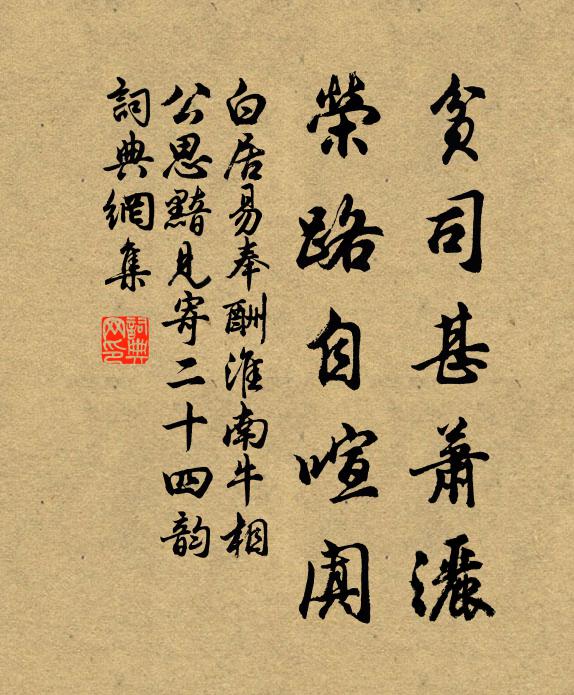 貧司甚蕭灑
榮路自喧闐
白居易奉酬淮南牛相
公思黯見寄二十四韵
詞典網集
詞典
网印